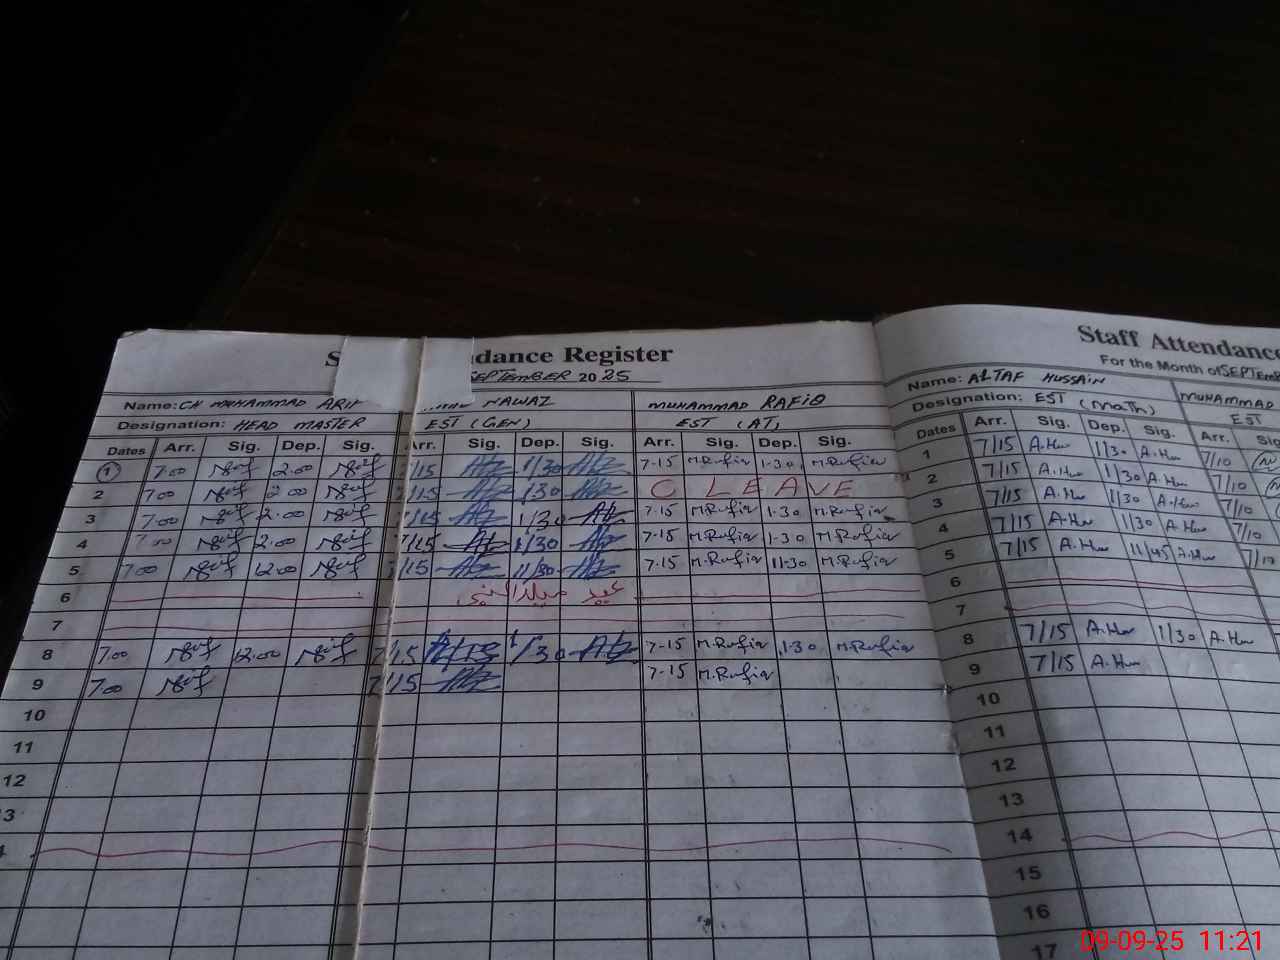 dance Register
SEPTEMBER 2025
Name: CH MUHAMMAD ARIF NAWAZ MUHAMMAD RAFIQ
Designation: HEAD MASTER EST (GEN) EST (AT)
Dates Arr. Sig. Dep. Sig. Arr. Sig. Dep. Sig. Arr. Sig. Dep. Sig.
1 7.00 2.00 7/15 1/30 7-15 M.Rafiq 1-30 M.Rafiq
2 7.00 2.00 7/15 1/30 C LEAVE
3 7.00 2.00 7/15 1/30 7-15 M.Rafiq 1-30 M.Rafiq
4 7.00 2.00 7/15 1/30 7-15 M.Rafiq 1-30 M.Rafiq
5 7.00 12.00 7/15 11/30 7-15 M.Rafiq 11-30 M.Rafiq
6 عید میلادالنبی
7
8 7.00 12.00 7/15 1/30 7-15 M.Rafiq 1-30 M.Rafiq
9 7.00 7/15 7-15 M.Rafiq
10
11
12
13
Staff Attendance
For the Month of SEPTEMB
Name: ALTAF HUSSAIN MUHAMMAD
Designation: EST (MATH) EST
Dates Arr. Sig. Dep. Sig. Arr.
1 7/15 A.Hu 1/30 A.Hu 7/10
2 7/15 A.Hu 1/30 A.Hu 7/10
3 7/15 A.Hu 1/30 A.Hu 7/10
4 7/15 A.Hu 1/30 A.Hu 7/10
5 7/15 A.Hu 11/45 A.Hu 7/10
6
7
8 7/15 A.Hu 1/30 A.Hu
9 7/15 A.Hu
10
11
12
13
14
15
16
17
09-09-25 11:21